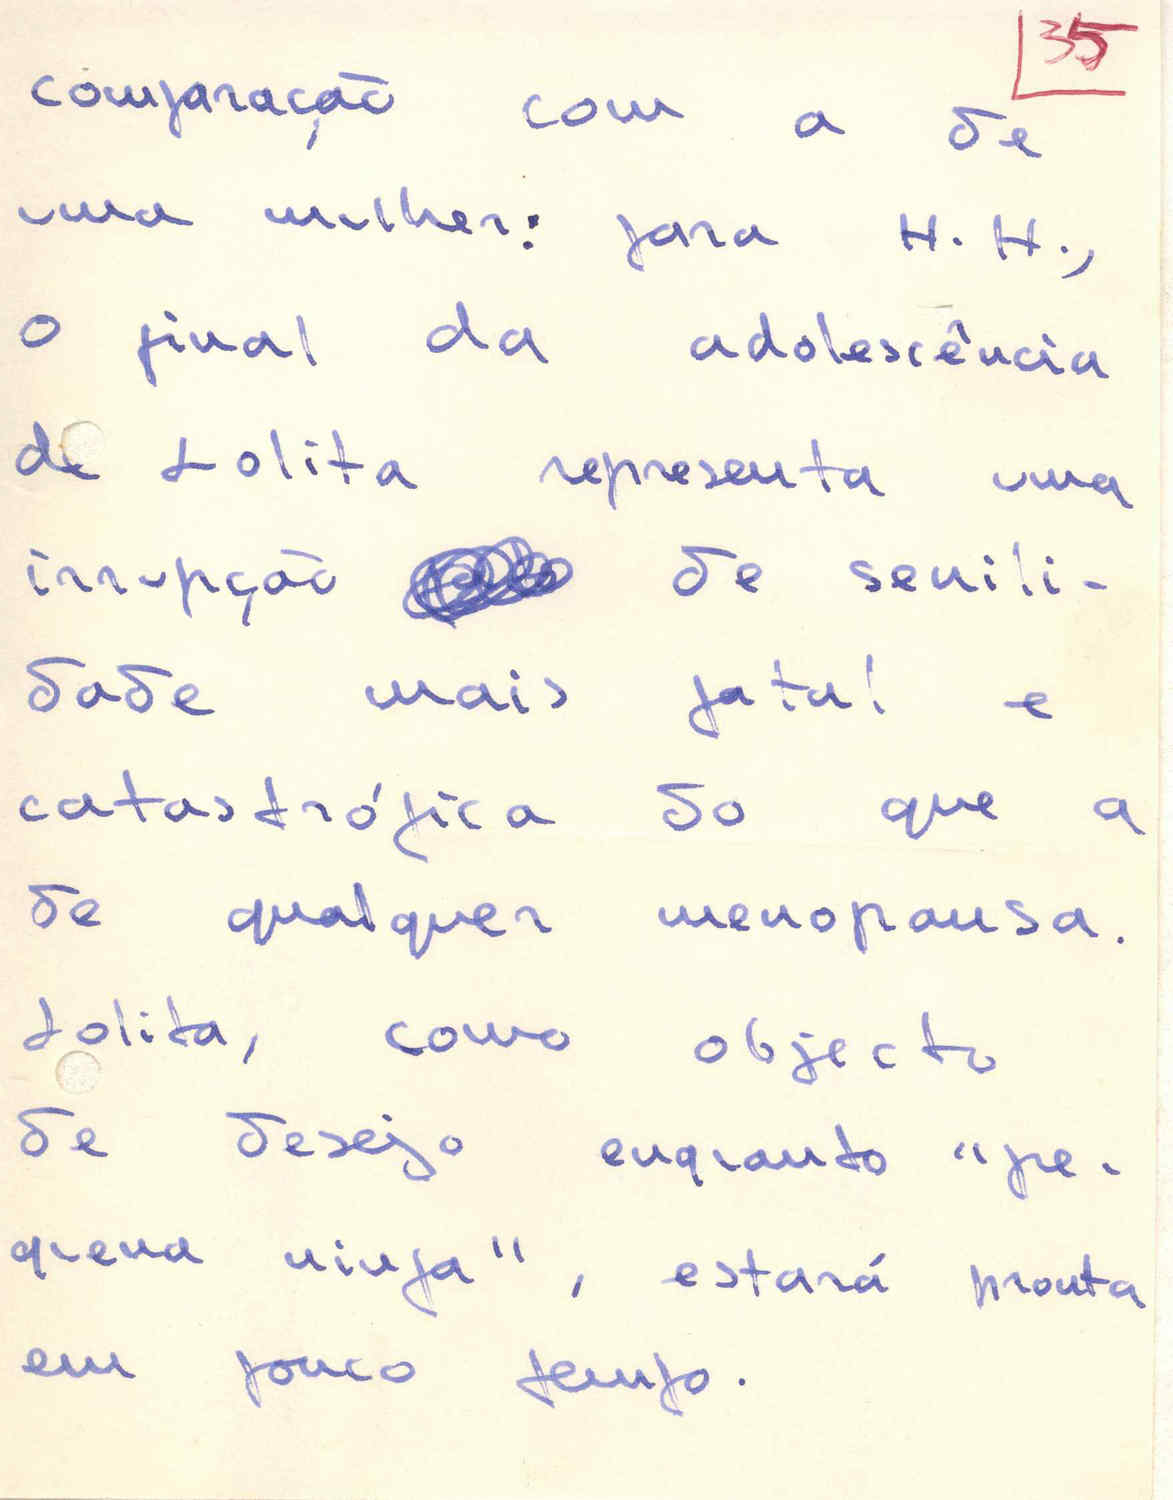 35
comparação com a de
uma mulher: para H. H.,
o final da adolescência
de Lolita representa uma
irrupção de senili-
dade mais fatal e
catastrófica do que a
de qualquer menopausa.
Lolita, como objecto
de desejo enquanto "pe-
quena ninfa", estará pronta
em pouco tempo.